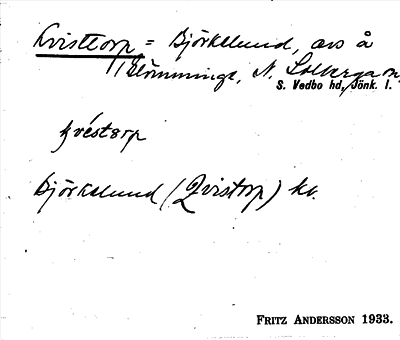 Kvisttorp = Björkelund, avs å
Blömminge, N. Solberga sn,
S. Vedbo hd, Jönk. l.
kvéstorp
Björkelund (Qvistorp) kv.
FRITZ ANDERSSON 1933.